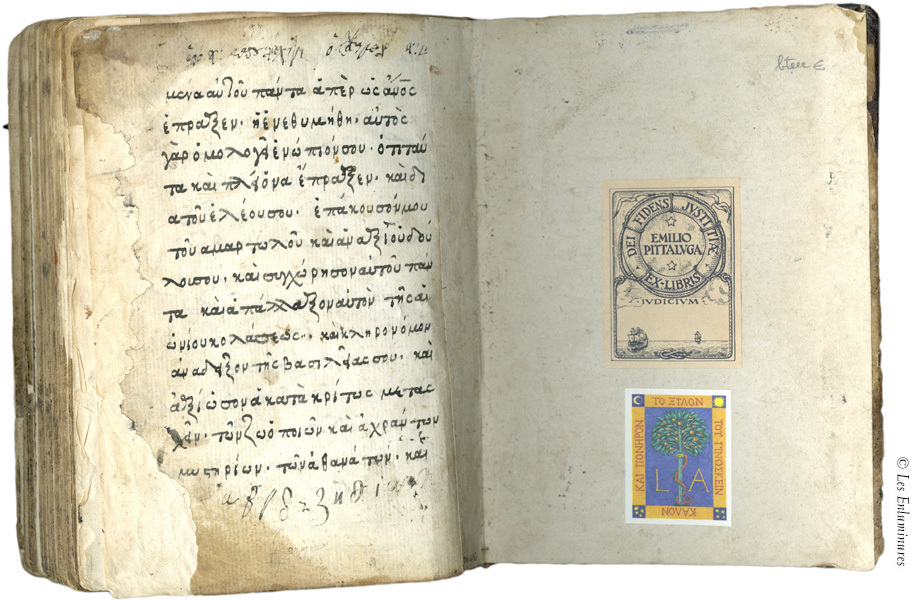 μενα αὐτοῦ πάντα ἅπερ ὡς ἄνος
ἔπραξεν· ἢ ἐνεθυμήθη· αὐτὸς
γὰρ ὁμολογεῖ ἐνώπιόν σου· ὅτι ταῦ
τα καὶ πλείονα ἔπραξεν· καὶ δι
α τοῦ ἐλέου σου· ἐπάκουσόν μου
τοῦ ἁμαρτωλοῦ καὶ ἀναξίου δού
λοι σου· καὶ συγχώρησον αὐτοῦ πάν
τα καὶ ἀπάλλαξον αὐτὸν τῆς αἰ
ωνίου κολάσεως· καὶ κληρονόμον
ἀνάδειξον τῆς βασιλείας σου· καὶ
ἀξίωσον ἀκατακρίτως μετασ
χεῖν· τῶν ζωοποιῶν καὶ ἀχράντων
μυστηρίων· τῶν ἀθανάτων· καὶ
α β γ δ ε ζ η θ ι
DEI FIDENS JVSTITIÆ
EMILIO
PITTALVGA
EX-LIBRIS
IVDICIVM
ΤΟ ΞΥΛΟΝ
ΤΟΥ ΓΙΝΩΣΚΕΙΝ
ΚΑΛΟΝ
ΚΑΙ ΠΟΝΗΡΟΝ
L A
© Les Enluminures